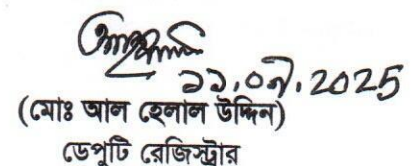 ১১.০৭.2025
(মোঃ আল হেলাল উদ্দিন)
ডেপুটি রেজিস্ট্রার